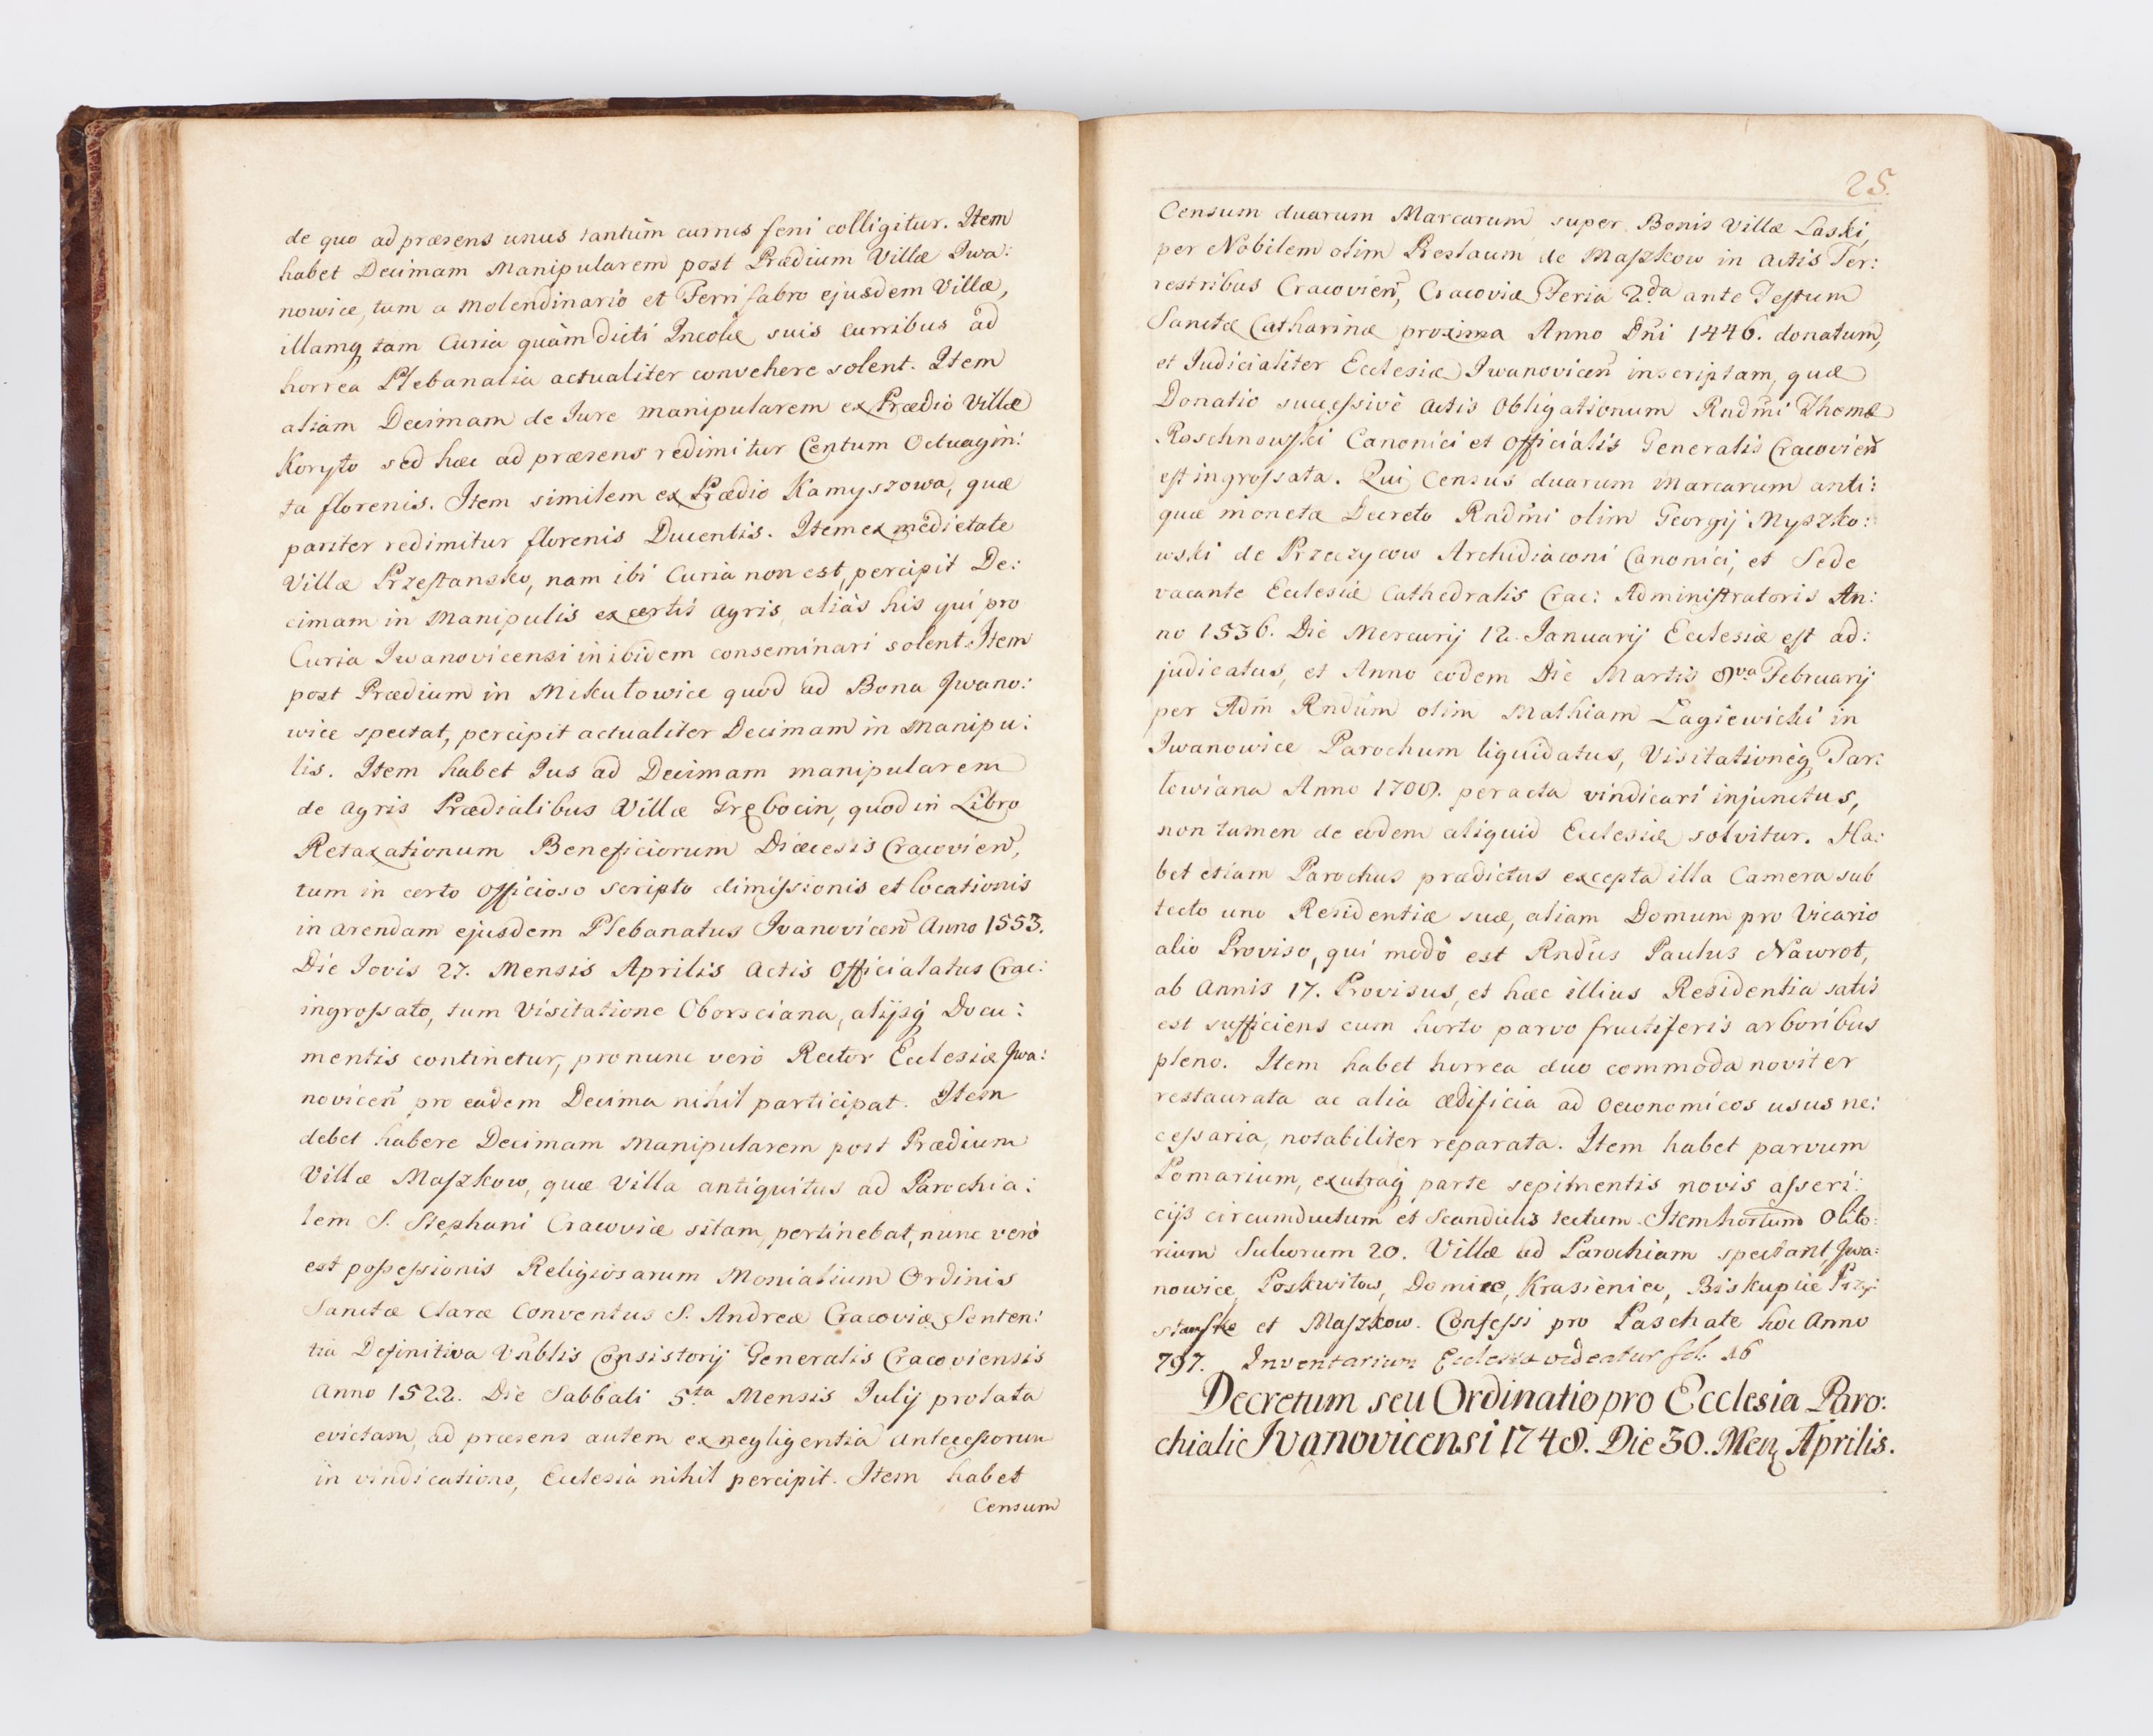 de quo ad præsens unus tantùm currus feni colligitur. Item
habet Decimam Manipularem post Prædium Villæ Iwa:
nowice, tum a Molendinario et Ferri fabro ejusdem Villæ,
illamq tam Curia quàm dicti Incolæ suis curribus ad
horrea Plebanalia actualiter convehere solent. Item
aliam Decimam de Iure manipularem ex Prædio Villæ
Koryto sed hæc ad præsens redimitur Centum Octuagin:
ta florenis. Item similem ex Prædio Kamyszowa, quæ
pariter redimitur florenis Ducentis. Item ex medietate
Villæ Przestansko, nam ibi Curia non est, percipit De:
cimam in Manipulis ex certis agris, aliàs his qui pro
Curia Iwanovicensi inibidem conseminari solent. Item
post Prædium in Mikułowice quod ad Bona Iwano:
wice spectat, percipit actualiter Decimam in Manipu:
lis. Item habet Ius ad Decimam manipularem
de agris Prædialibus Villæ Grębocin, quod in Libro
Retaxationum Beneficiorum Diæcesis Cracovien̄,
tum in certo Officioso scripto dimissionis et locationis
in arendam ejusdem Plebanatus Ivanovicen̄ Anno 1553.
Die Iovis 27. Mensis Aprilis Actis Officialatus Crac:
ingrossato, tum Visitatione Oborsciana, alijsq Docu:
mentis continetur, pro nunc verò Rector Ecclesiæ Iwa:
novicen̄ pro eadem Decima nihil participat. Item
debet habere Decimam Manipularem post Prædium
Villæ Maszkow, quæ Villa antiquitus ad Parochia:
lem S. Stephani Cracoviæ sitam, pertinebat, nunc verò
est possessionis Religiosarum Monialium Ordinis
Sanctæ Claræ Conventus S. Andreæ Cracoviæ, Senten:
tia Definitiva Vnblis Consistorij Generalis Cracoviensis
Anno 1522. Die Sabbati 5.ta Mensis Iulij prolata
evictam, ad præsens autem ex negligentia Antecessorum
in vindicatione, Ecclesia nihil percipit. Item habet
Censum
25.
Censum duarum Marcarum super Bonis Villæ Laski,
per Nobilem olim de Maszkow in Actis Ter:
restribus Cracovien̄, Cracoviæ Feria 2.da ante Festum
Sanctæ Catharinæ proxima Anno Dn̄i 1446. donatum,
et Iudicialiter Ecclesiæ Iwanovicen̄ inscriptam, quæ
Donatio successivè Actis Obligationum Rndm̄i Thomæ
Roschnowski Canonici et Officialis Generalis Cracovien̄
est ingrossata. Qui Census duarum Marcarum anti:
quæ monetæ Decreto Rndm̄i olim Georgij Myszko:
wski de Przeczycow Archidiaconi Canonici, et Sede
vacante Ecclesiæ Cathedralis Crac: Administratoris An:
no 1536. Die Mercurij 12. Ianuarij Ecclesiæ est ad:
judicatus, et Anno eodem Die Martis 8va Februarij
per Adm̄ Rndūm olim Mathiam Łagiewicki in
Iwanowice Parochum liquidatus, Visitationeq, Par:
lowiana Anno 1708. peracta vindicari injunctus,
non tamen de eodem aliquid Ecclesiæ solvitur. Ha:
bet etiam Parochus prædictus excepta illa Camera sub
tecto uno Residentiæ suæ, aliam Domum pro Vicario
alio Proviso, qui modò est Rndūs Paulus Nawrot,
ab Annis 17. Provisus, et hæc illius Residentia satis
est sufficiens cum horto parvo fructiferis arboribus
pleno. Item habet horrea duo commoda noviter
restaurata ac alia ædificia ad Oeconomicos usus ne:
cessaria, notabiliter reparata. Item habet parvum
Pomarium, ex utraq parte sepimentis novis asseri:
cijs circumductum et Scandulis tectum. Item hortum Olito:
rium Sulcorum 20. Villæ ad Parochiam spectant, Iwa:
nowice, Poskwitow, Domice, Krasieniec, Biskupice Przy:
stansko et Maszkow. Confessi pro Paschate hoc Anno
797. Inventarium Ecclesiæ videatur fol. 16
Decretum seu Ordinatio pro Ecclesia Paro:
chiali Ivanovicensi 1748. Die 30. Men̨ Aprilis.